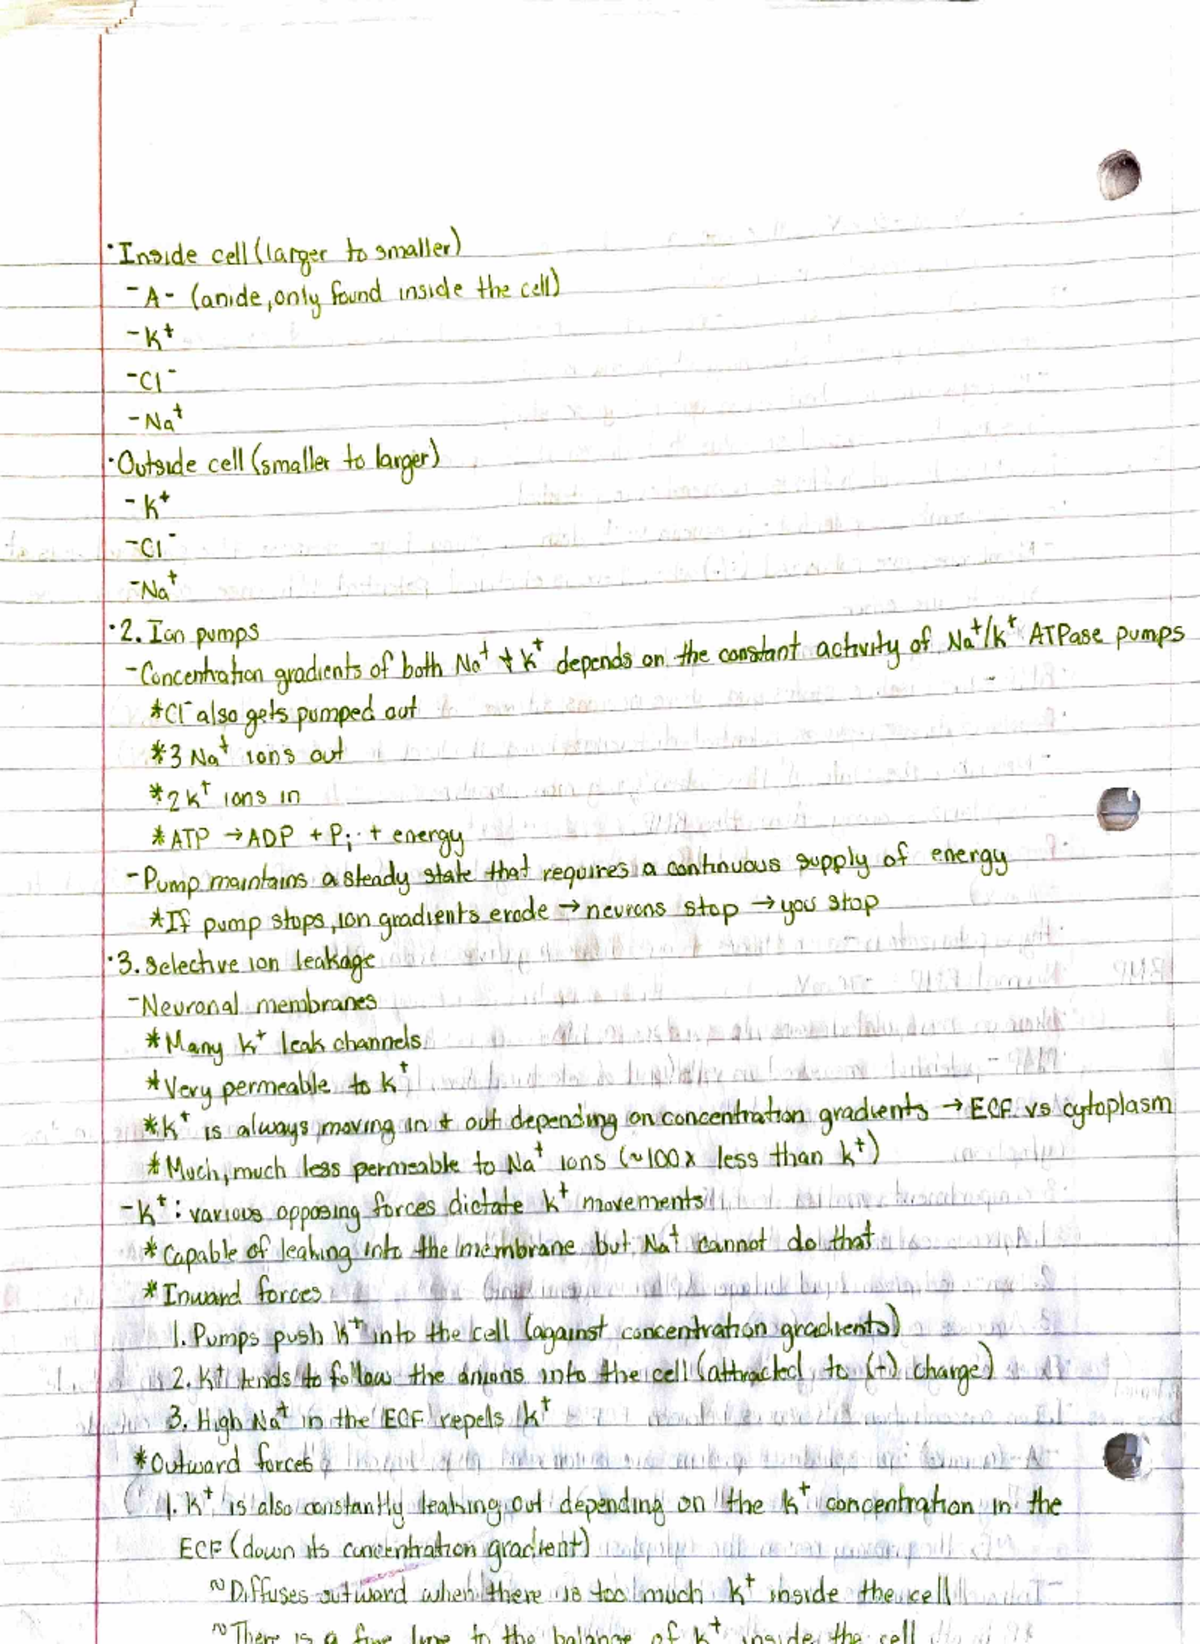 ·Inside cell (larger to smaller)
- A- (anide, only found inside the cell)
- K⁺
- Cl⁻
- Na⁺
·Outside cell (smaller to larger)
- K⁺
- Cl⁻
- Na⁺
·2. Ion pumps
- Concentration gradients of both Na⁺ & K⁺ depends on the constant activity of Na⁺/K⁺ ATPase pumps
*Cl⁻ also gets pumped out
*3 Na⁺ ions out
*2 K⁺ ions in
*ATP → ADP + Pi + energy
- Pump maintains a steady state that requires a continuous supply of energy
*If pump stops, ion gradients erode → neurons stop → you stop
·3. Selective ion leakage
- Neuronal membranes
*Many K⁺ leak channels
*Very permeable to K⁺
*K⁺ is always moving in & out depending on concentration gradients → ECF vs cytoplasm
*Much, much less permeable to Na⁺ ions (~100x less than K⁺)
- K⁺: various opposing forces dictate K⁺ movements
*Capable of leaking into the membrane but Na⁺ cannot do that
*Inward forces
1. Pumps push K⁺ into the cell (against concentration gradients)
2. K⁺ tends to follow the anions into the cell (attracted to (-) charge)
3. High Na⁺ in the ECF repels K⁺
*Outward forces
1. K⁺ is also constantly leaking out depending on the K⁺ concentration in the
ECF (down its concentration gradient)
~Diffuses outward when there is too much K⁺ inside the cell
~There is a fine line to the balance of K⁺ inside the cell